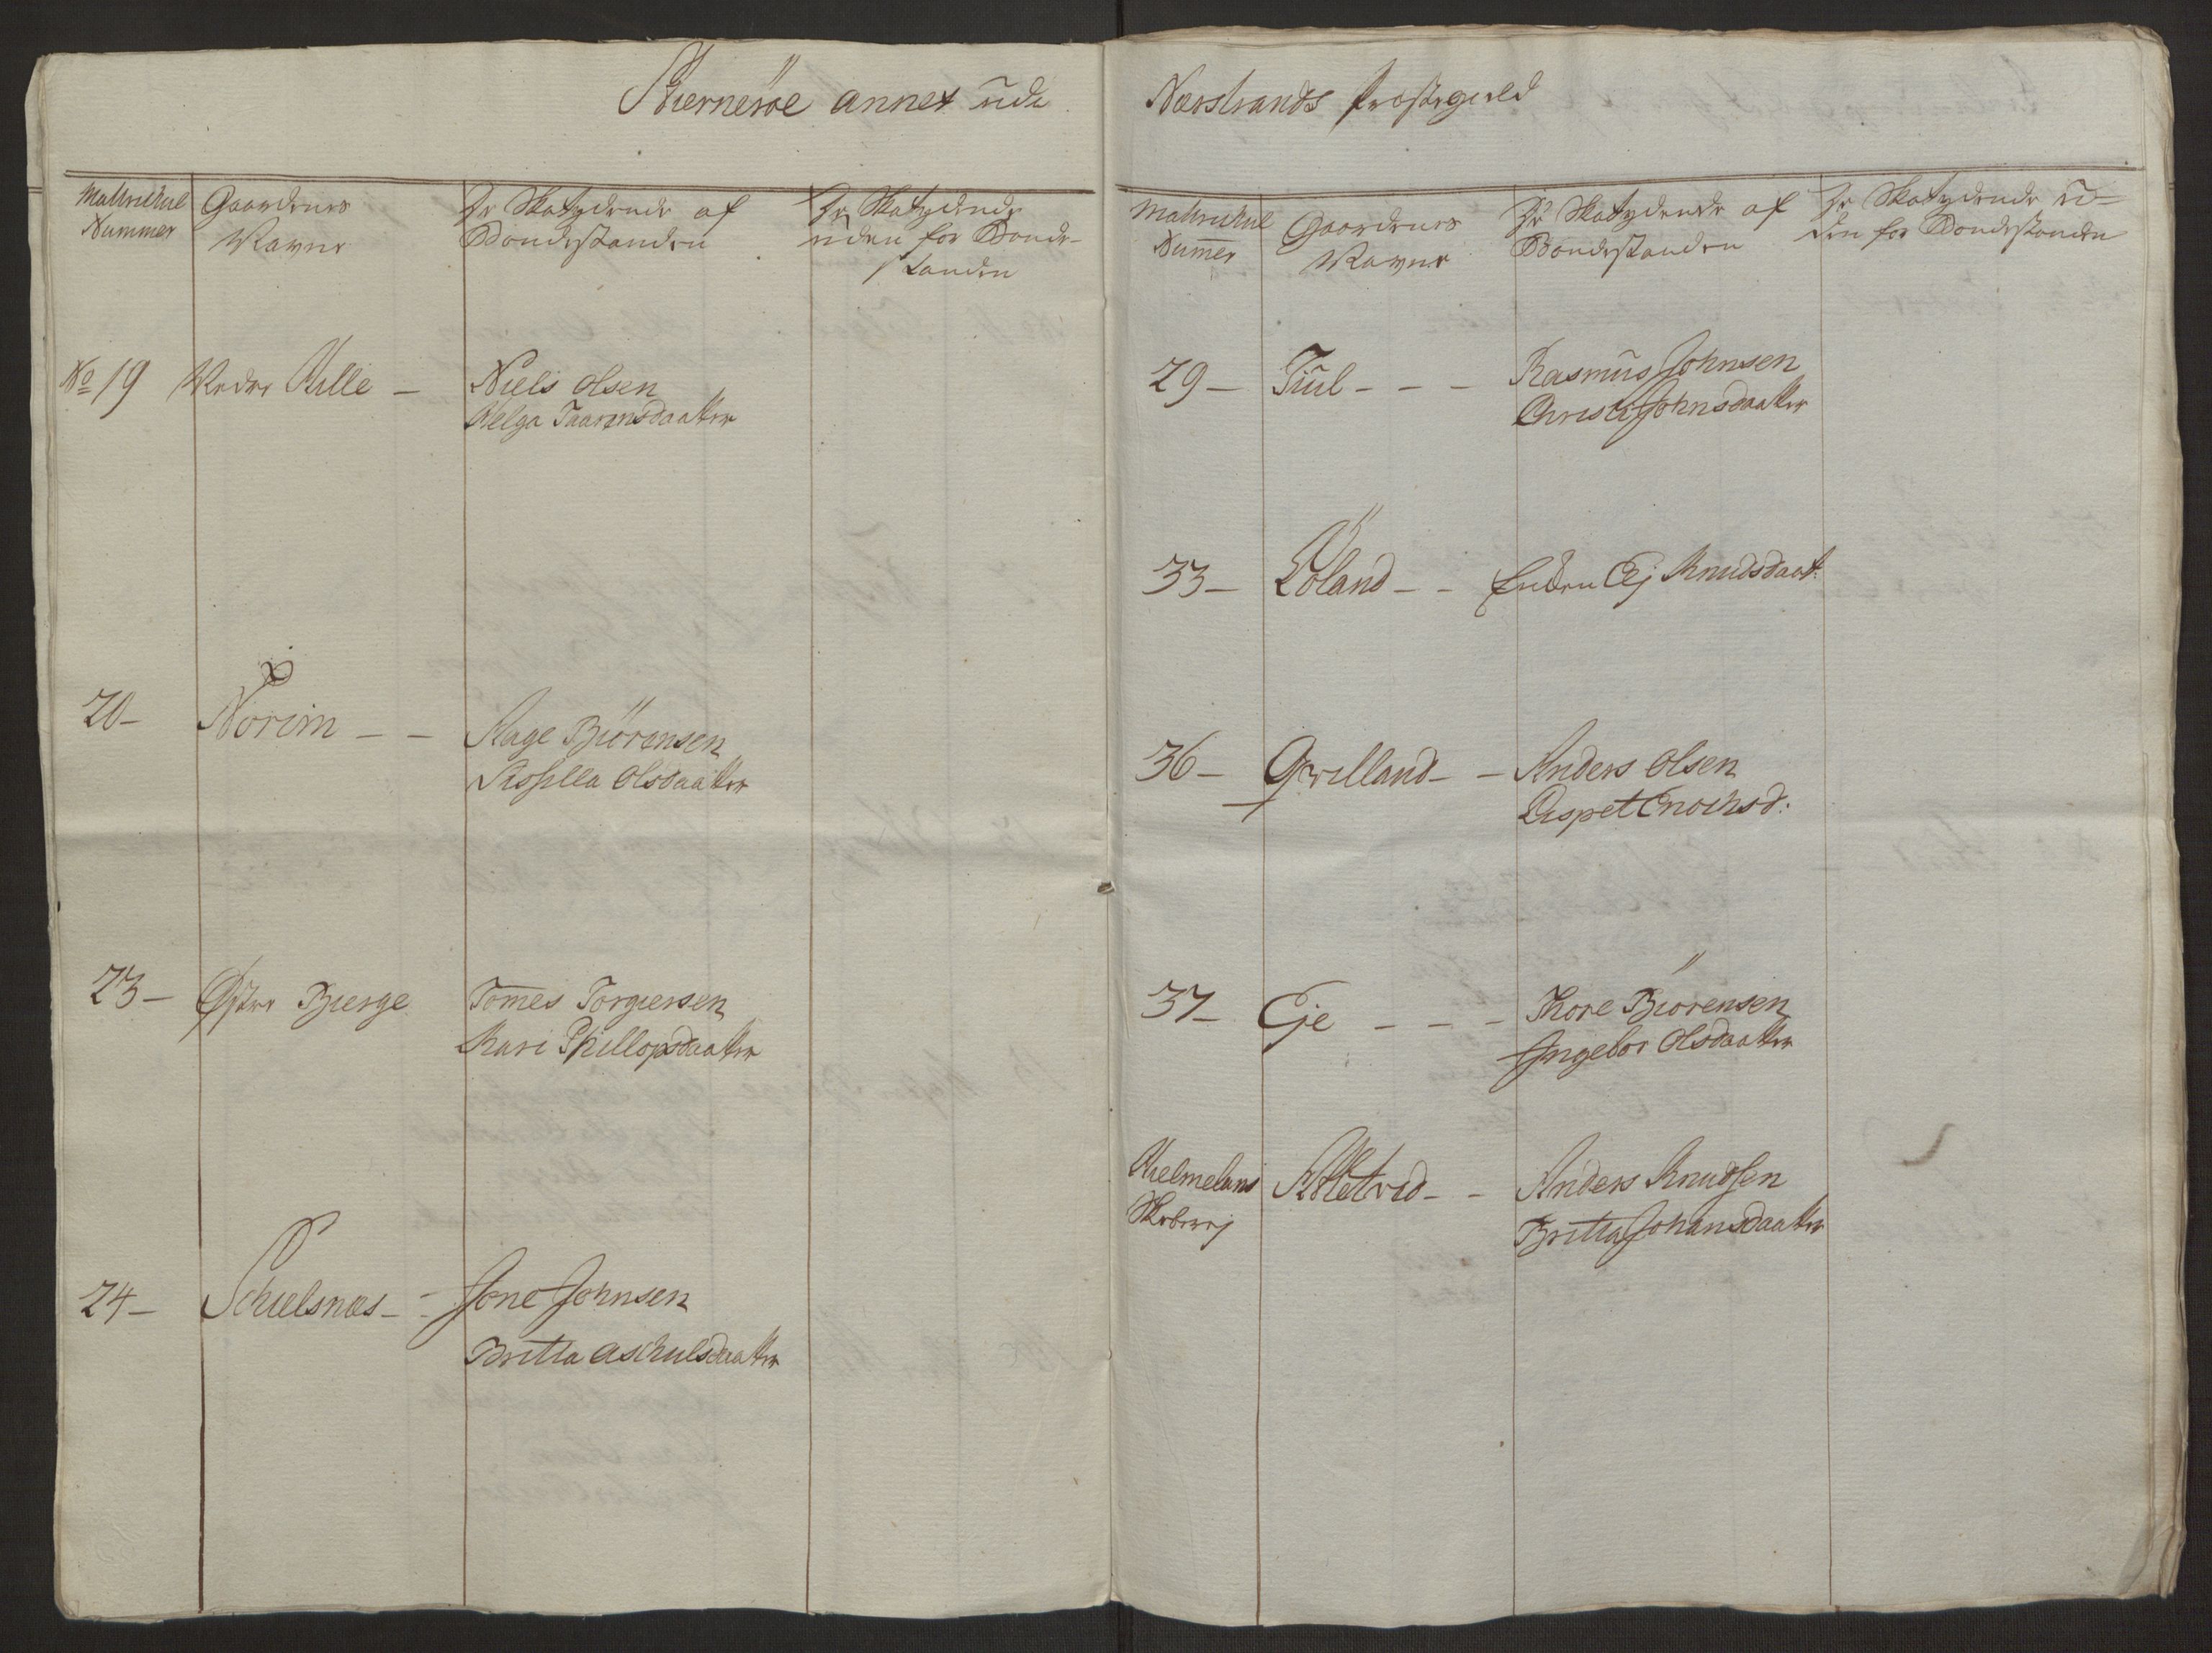 Skiernerøe annex udi
Matricul Nummer
Gaardenes Navne
De Skatydende af Bondestanden
De Skatydende uden for Bondestanden
No 19 Nedre Hille — Niels Olsen
Helga Taaremsdaatter
20 — Norim — — Aage Biörensen
Sissilla Olsdaatter
23 — Øster Bierge Tomes Torgiersen
Kari Phillopsdaatter
24 — Schielsnæs — Jone Johnsen
Britta Aschulsdaatter
Nærstrands Præstegield
Matricul Numer
Gaardenes Navne
De Skatydende af Bondestanden
De Skatydende uden for Bondestanden
29 — Tuul — — — Rasmus Johnsen
Christi Johnsdaatter
33 — Löland — — Enken Ej Knudsdaat:
36 — Qvilland — — Anders Olsen
Lispet Enochsd:
37 — Eje — — — Thore Biörensen
Ingebor Olsdaatter
Helmeland Skibrej Atletved — — Anders Knudsen
Britta Johansdaatter